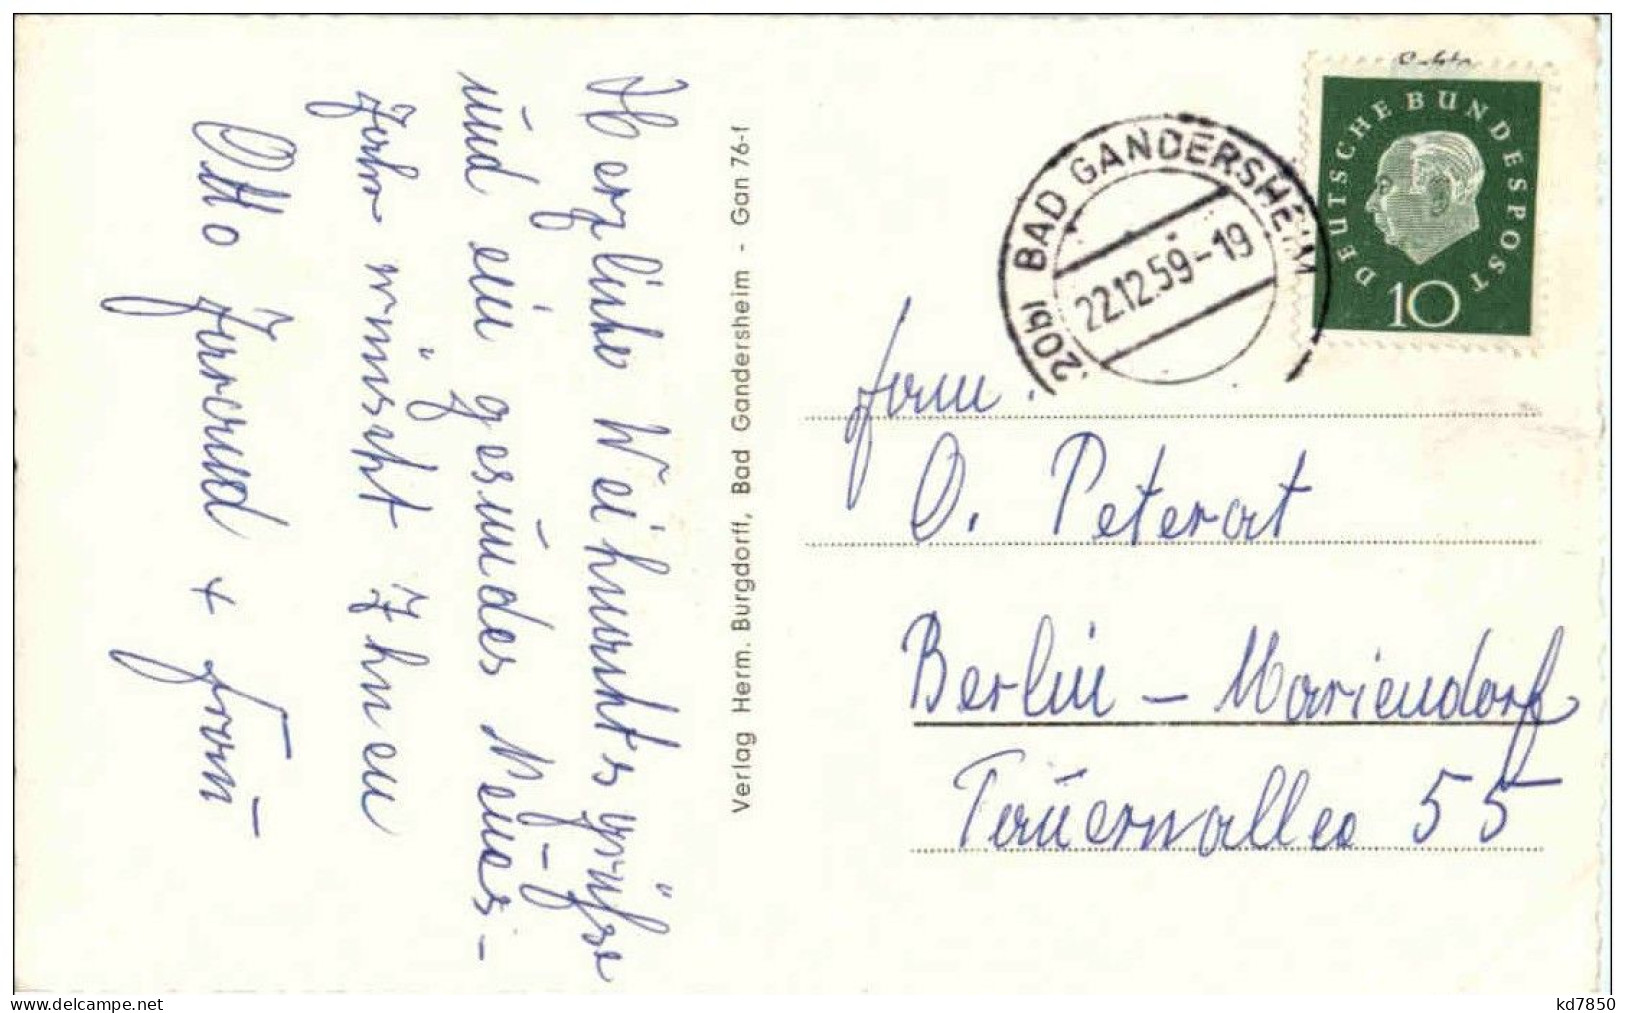 Herzliche Weihnachtsgrüße
und ein gesundes Neues-
Jahr wünscht Ihnen
Otto + Frau
Verlag Herm. Burgdorff, Bad Gandersheim - Gan 76-f
(20b) BAD GANDERSHEIM
22.12.59-19
DEUTSCHE BUNDESPOST
10
Fam.
O. Peterat
Berlin - Mariendorf
Tauernallee 55
delcampe.net
kd7850